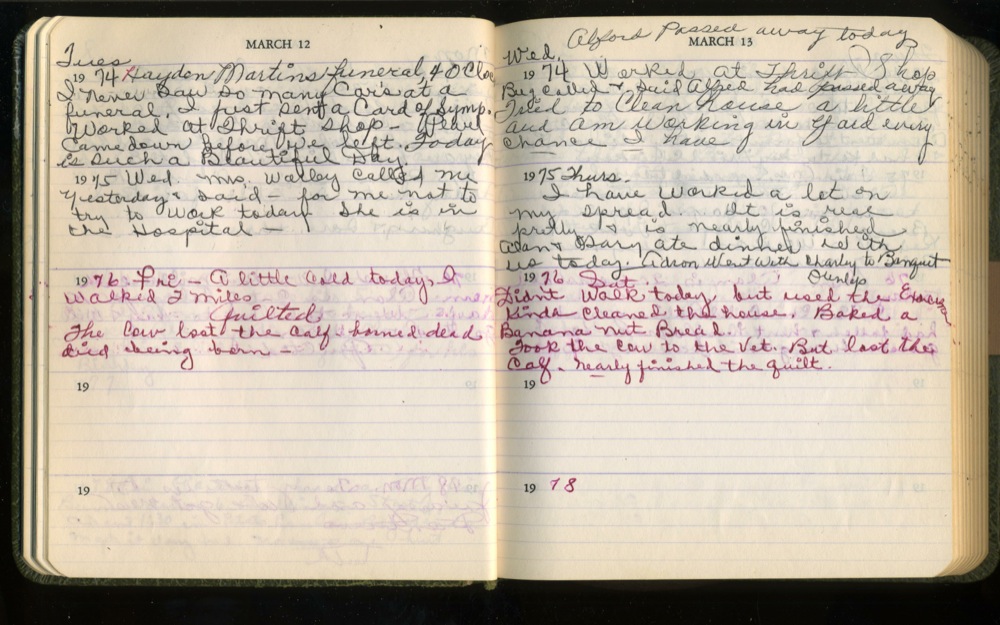 MARCH 12
Tues
1974 Hayden Martins funeral, 4 O Cloc
I never saw so many Cars at a
funeral. I just sent a Card of Symp.
Worked at Thrift Shop -
Came down before we left. Today
is such a Beautiful Day.
1975 Wed. Mrs. Walley Called me
Yesterday & said - for me not to
try to Work today She is in
the Hospital -
1976 Fri - A little Cold today. I
Walked 2 miles
Quilted
The Cow lost the Calf - horned dead
died being born -
19
19
Alford Passed away today
MARCH 13
Wed.
1974 Worked at Thrift Shop
called & said Alfred had passed away
Tried to Clean House a little
and am Working in Yard every
chance I have
1975 Thurs.
I have Worked a lot on
my spread. It is real
pretty & is nearly finished
& Gary ate dinner with
us today. Adron Went With Charly to Banquet
Dunlap
1976 Sat
Didnt Walk today but used the
Kinda Cleaned the house. Baked a
Banana nut Bread.
Took the Cow to the Vet. But lost the
Calf. nearly finished the quilt.
19
1978